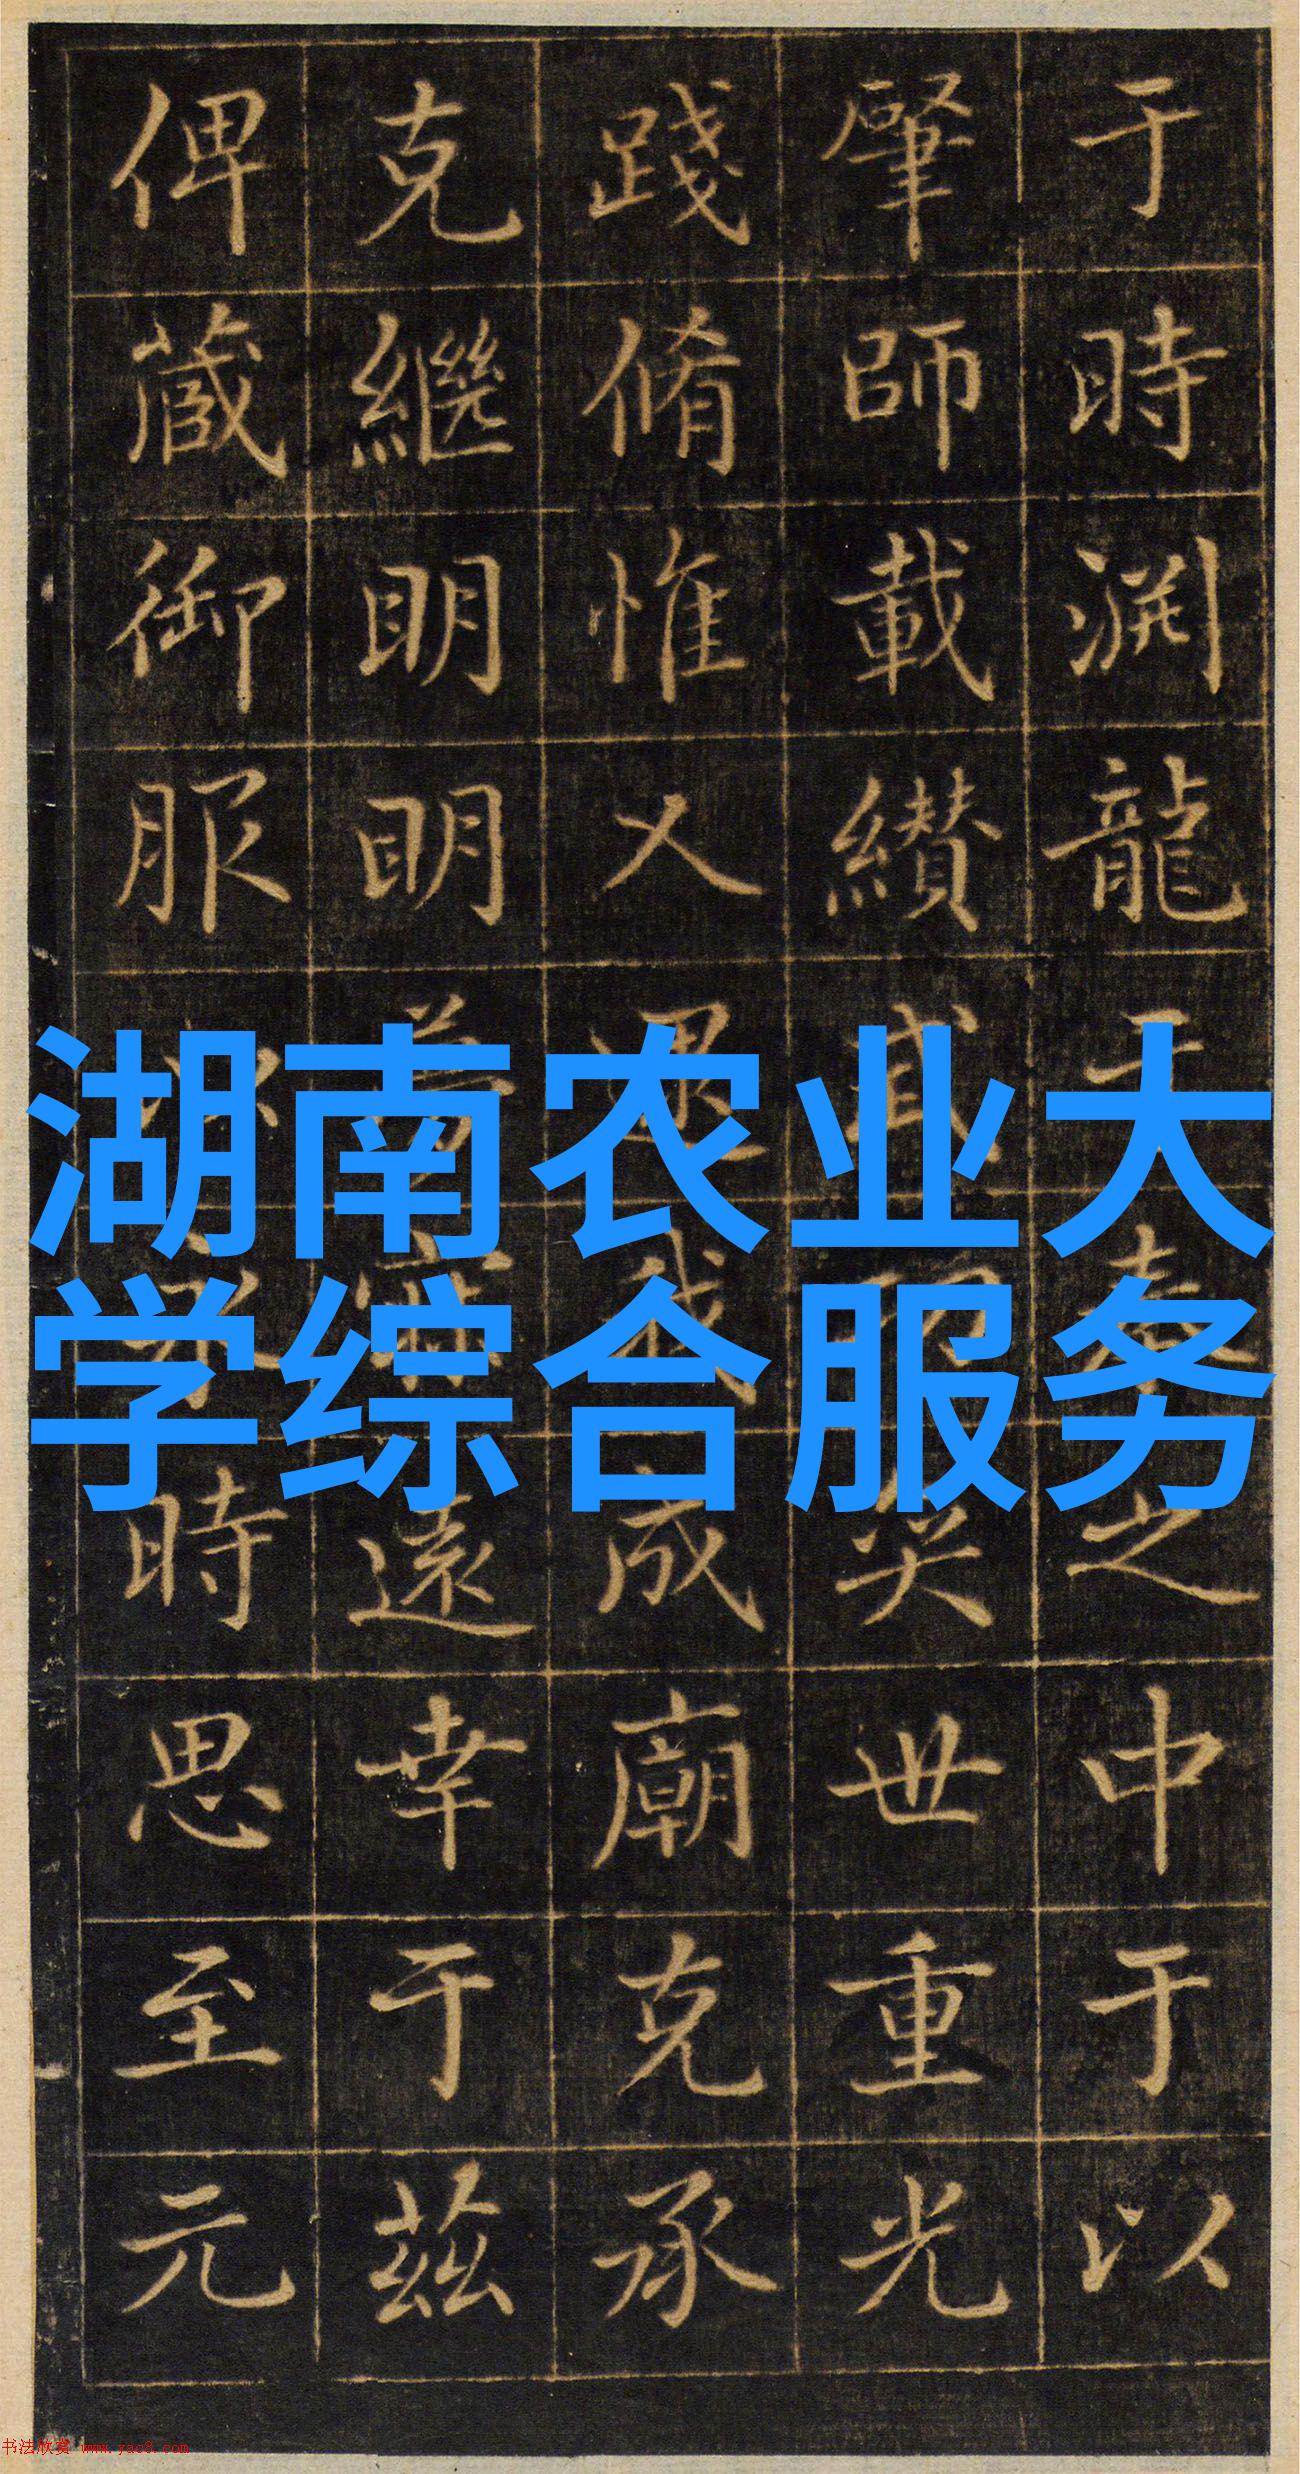 于時渊龍于之中于以
肇師載纘奕世重光
踐脩惟人我成廟克承
克繼明明遠幸于茲
俾蕆御服時思至元
湖南农业大
学综合服务
书法欣赏 www.yac8.com